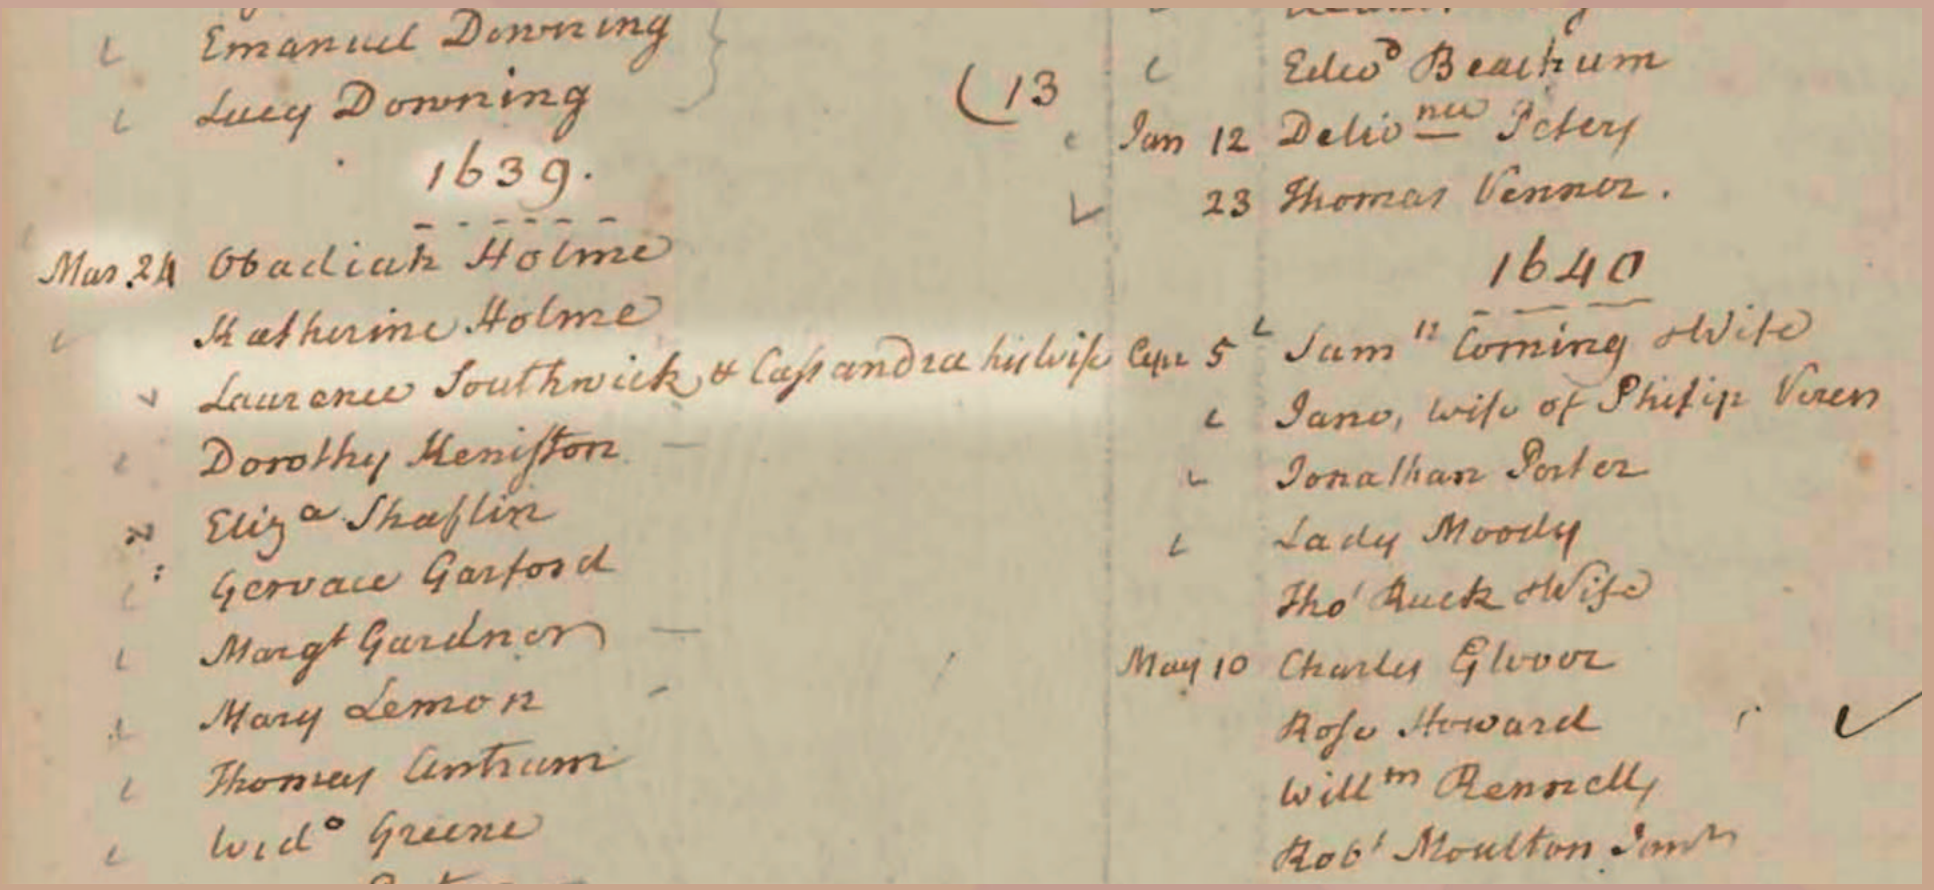 Emanuel Downing
Lucy Downing
1639.
Mar. 24 Obadiah Holme
Katherine Holme
Laurence Southwick & Cassandra his wife
Dorothy Keniston
Eliza Shaflin
Gervace Garford
Margt Gardner
Mary Lemon
Thomas Antrum
Wido Greene
(13
Edwd Beachum
Jan 12 Delivnce Peters
23 Thomas Venner.
1640
Apr 5 Samll Corning & Wife
Jane, wife of Philip Veren
Jonathan Porter
Lady Moody
Tho' Ruck & Wife
May 10 Charles Glover
Rose Howard
Willm Rennells
Robt Moulton Junr